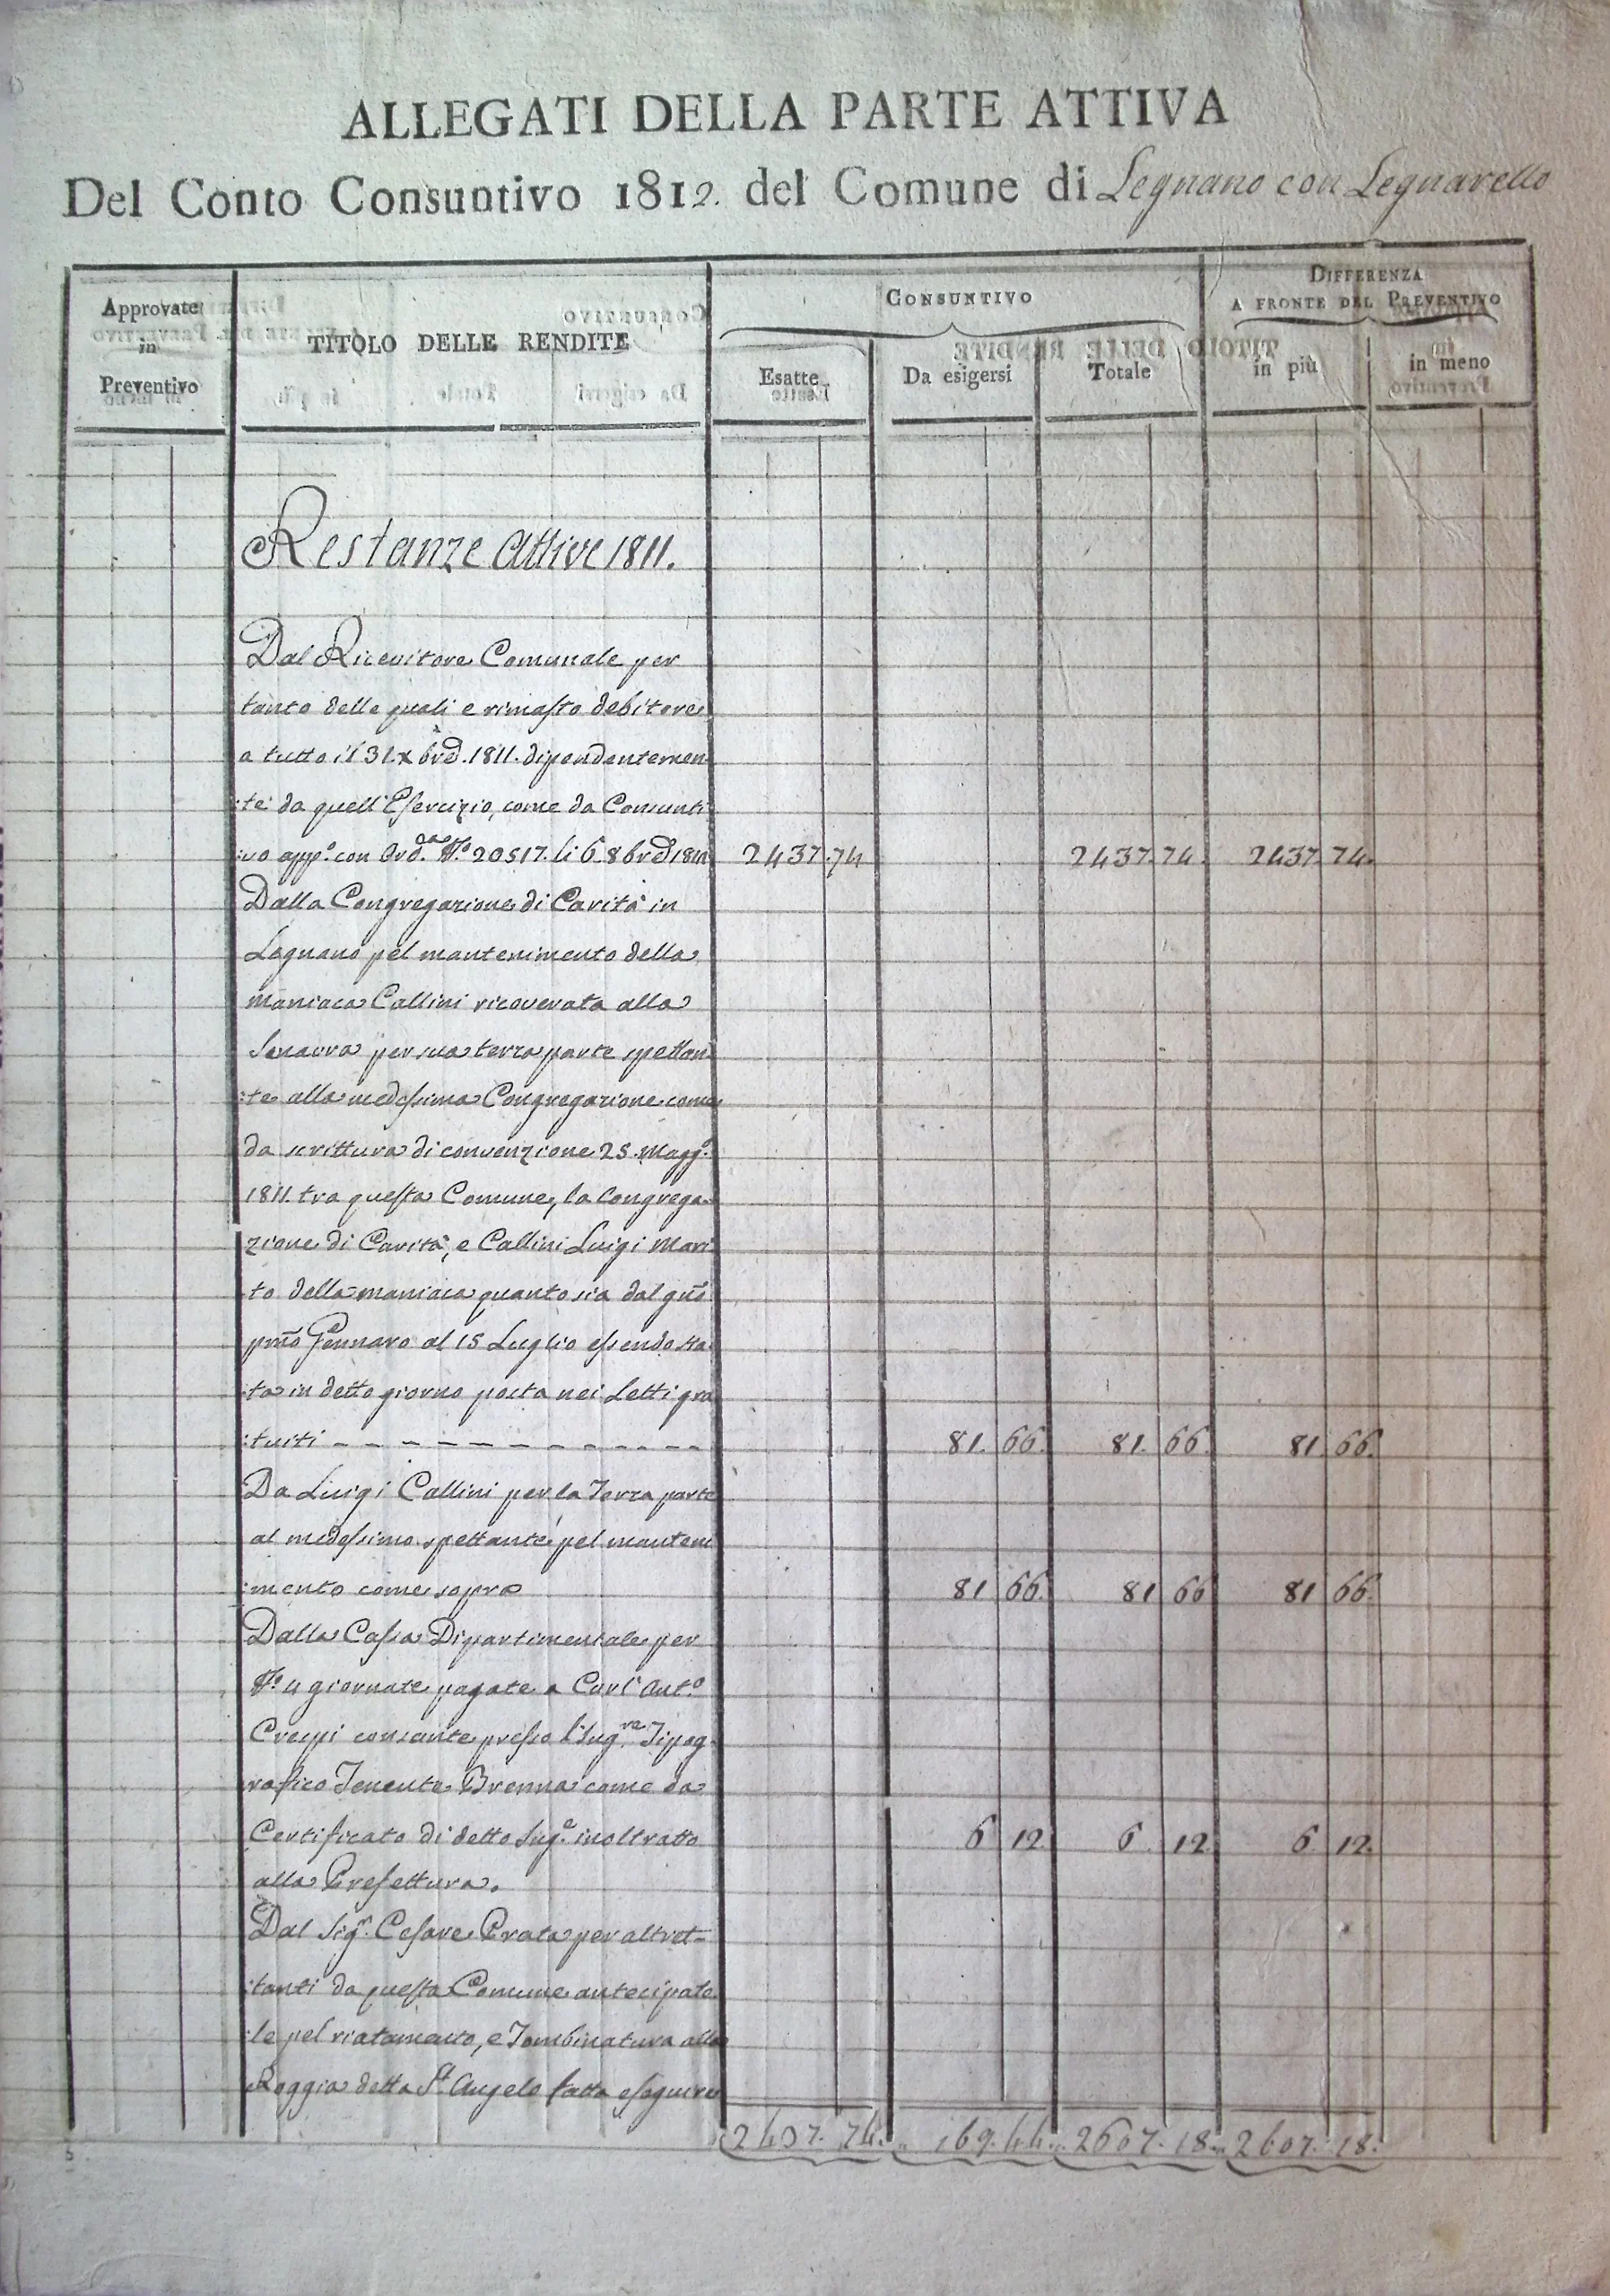 ALLEGATI DELLA PARTE ATTIVA
Del Conto Consuntivo 1812. del Comune di Legnano con Legnarello
Approvate
in
Preventivo
TITOLO DELLE RENDITE
CONSUNTIVO
Esatte
Da esigersi
Totale
DIFFERENZA
A FRONTE DEL PREVENTIVO
in più
in meno
Restanze Attive 1811.
Dal Ricevitore Comunale per
tanto delle quali e rimasto debitore
a tutto il 31. xbre. 1811. dipendentemen
:te da quell'Esercizio, come da Consunti
:vo app.o con Ord.za N.o 20517. li 6 8bre 1812 2437.74 2437.74. 2437.74.
Dalla Congregazione di Carità in
Legnano pel mantenimento della
maniaca Callini ricoverata alla
Senavra per sua terza parte spettan
:te alla medesima Congregazione come
da scrittura di convenzione 25. Magg.o
1811. tra questa Comune, la Congrega
zione di Carità, e Callini Luigi Mari
to della maniaca quanto sia dal gno
pmo Gennaro al 15 Luglio essendo sta
:ta in detto giorno posta nei Letti gra
:tuiti - - - - - - - - - - - - 81. 66. 81. 66. 81 66.
Da Luigi Callini per la Terza parte
al medesimo spettante pel manteni
:mento come sopra 81 66. 81 66 81 66.
Dalla Cassa Dipartimentale per
N.o 4 giornate pagate a Carl'Ant.o
Crespi cansante presso l'Ing.re Tipog
rafico Tenente Brenna come da
Certificato di detto Ing.e inoltratto 6 12. 6. 12. 6. 12.
alla Prefettura.
Dal Sig.r Cesare Prata per altret=
:tanti da questa Comune antecipate
:le pel riatamento, e Tombinatura alla
Roggia detta St. Angelo fatta eseguire
2437. 74. 169. 44. 2607. 18. 2607. 18.